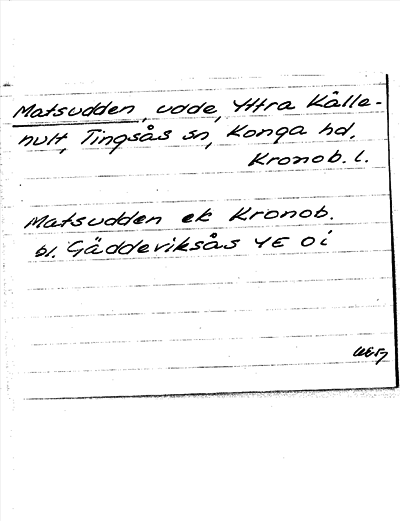 Matsudden, udde, Yttra Kålle-
hult, Tingsås sn, Konga hd.
Kronob. l.
Matsudden ek Kronob.
bl. Gäddeviksås 4E 0i